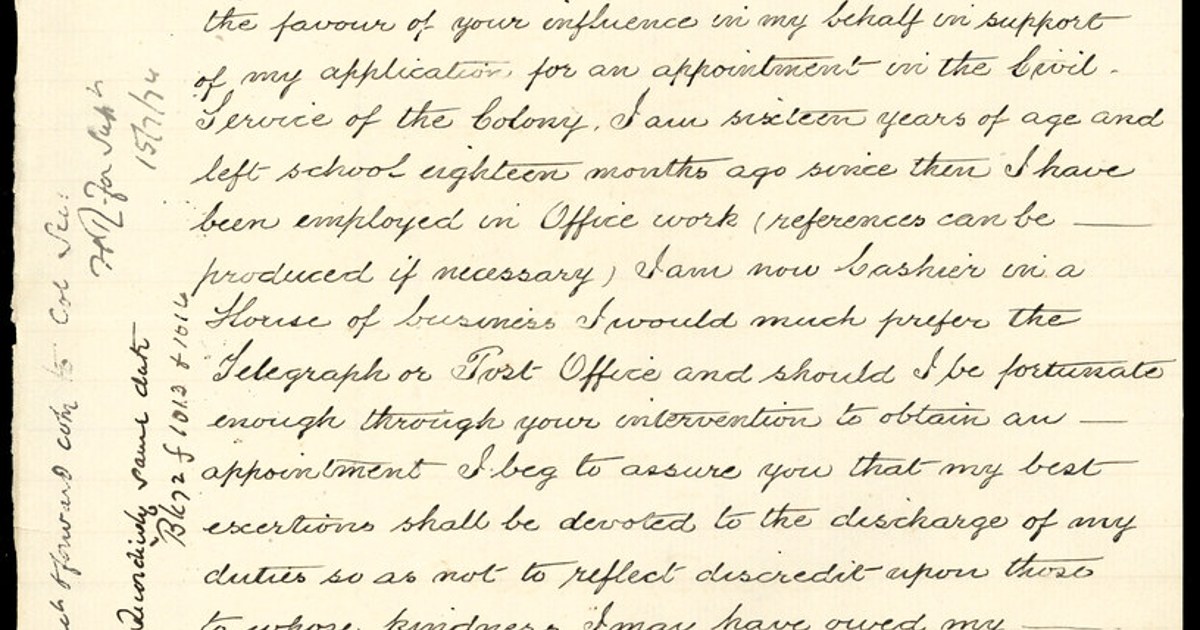 the favour of your influence in my behalf in support
of my application for an appointment in the Civil
Service of the Colony. I am sixteen years of age and
left school eighteen months ago since then I have
been employed in Office work (references can be
produced if necessary) I am now Cashier in a
House of business I would much prefer the
Telegraph or Post Office and should I be fortunate
enough through your intervention to obtain an
appointment I beg to assure you that my best
exertions shall be devoted to the discharge of my
duties so as not to reflect discredit upon those
to whose kindness I may have owed my
forward com to Col Sec:
for
15/7/74
same date
Bk72 f 1013 & 1014